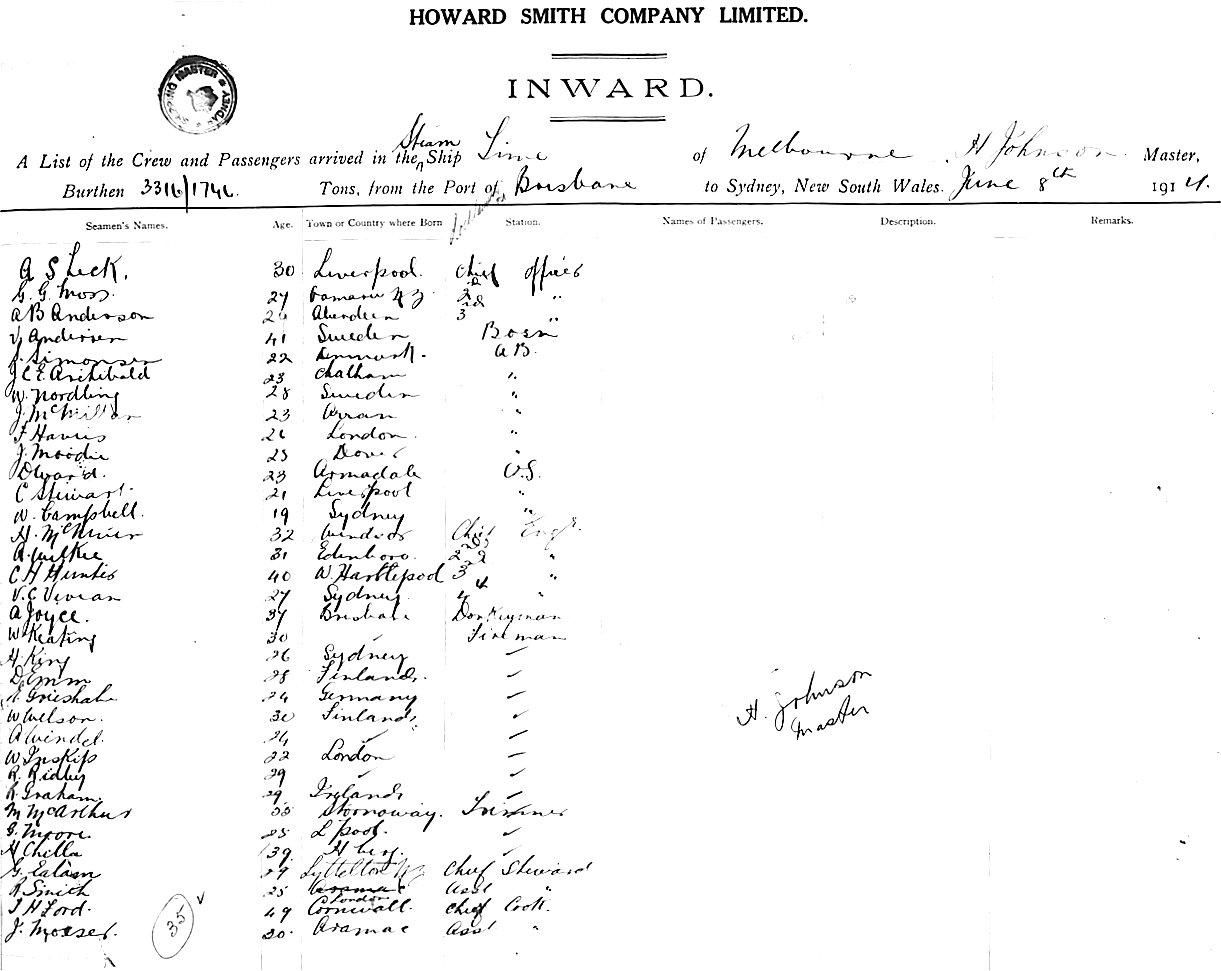 HOWARD SMITH COMPANY LIMITED.
INWARD.
SHIPPING MASTER SYDNEY
Steam
A List of the Crew and Passengers arrived in the Ship Time of Melbourne H Johnson Master,
Burthen 3316/1746 Tons, from the Port of Brisbane to Sydney, New South Wales. June 8th 1914.
Seamen's Names. Age. Town or Country where Born Station. Names of Passengers. Description. Remarks.
A S Leck. 30 Liverpool. Chief Officer
G. G. Moss. 27 Oamaru N Z 2nd "
A B Anderson Aberdeen 3rd "
V Andersen 41 Sweden Bosn
S. Simonsen 22 Denmark. A.B.
J C E Archibald 23 Chatham "
W. Nordling 28 Sweden "
J. McMillan 23 Arran "
F Harris 26 London. "
J. Moodie 23 Dover "
D Ward. 23 Armadale O.S.
C Stewart 21 Liverpool "
W. Campbell. 19 Sydney "
H. 32 Windsor Chief Engr.
A. Wilkie 31 Edinboro. 2nd "
C H Hunter 40 W. Hartlepool 3 "
V. C Vivian 27 Sydney. 4 "
A Joyce. 37 Brisbane Donkeyman
W Keating 30 ✓ Fireman
H. King 26 Sydney ✓
D. Emm 28 Finland. ✓
Grieshab 24 Germany ✓
W Welson. 30 Finland ✓
A Windel. 24 ✓ ✓
W Inskip 22 London ✓
R. Ridley 29 ✓ ✓
R. Graham 29 Ireland ✓
M McArthur 35 Stornoway. Trimmer
G. Moore. 25 L'pool. ✓
H Chilla 39 H berg. ✓
G. Ealam 29 Lyttelton N Z Chief Steward
R Smith 25 London Asst "
T H Ford. 49 Cornwall. Chief Cook.
J. Moeser. 20 Aramac Asst "
35 ✓
H. Johnson
Master